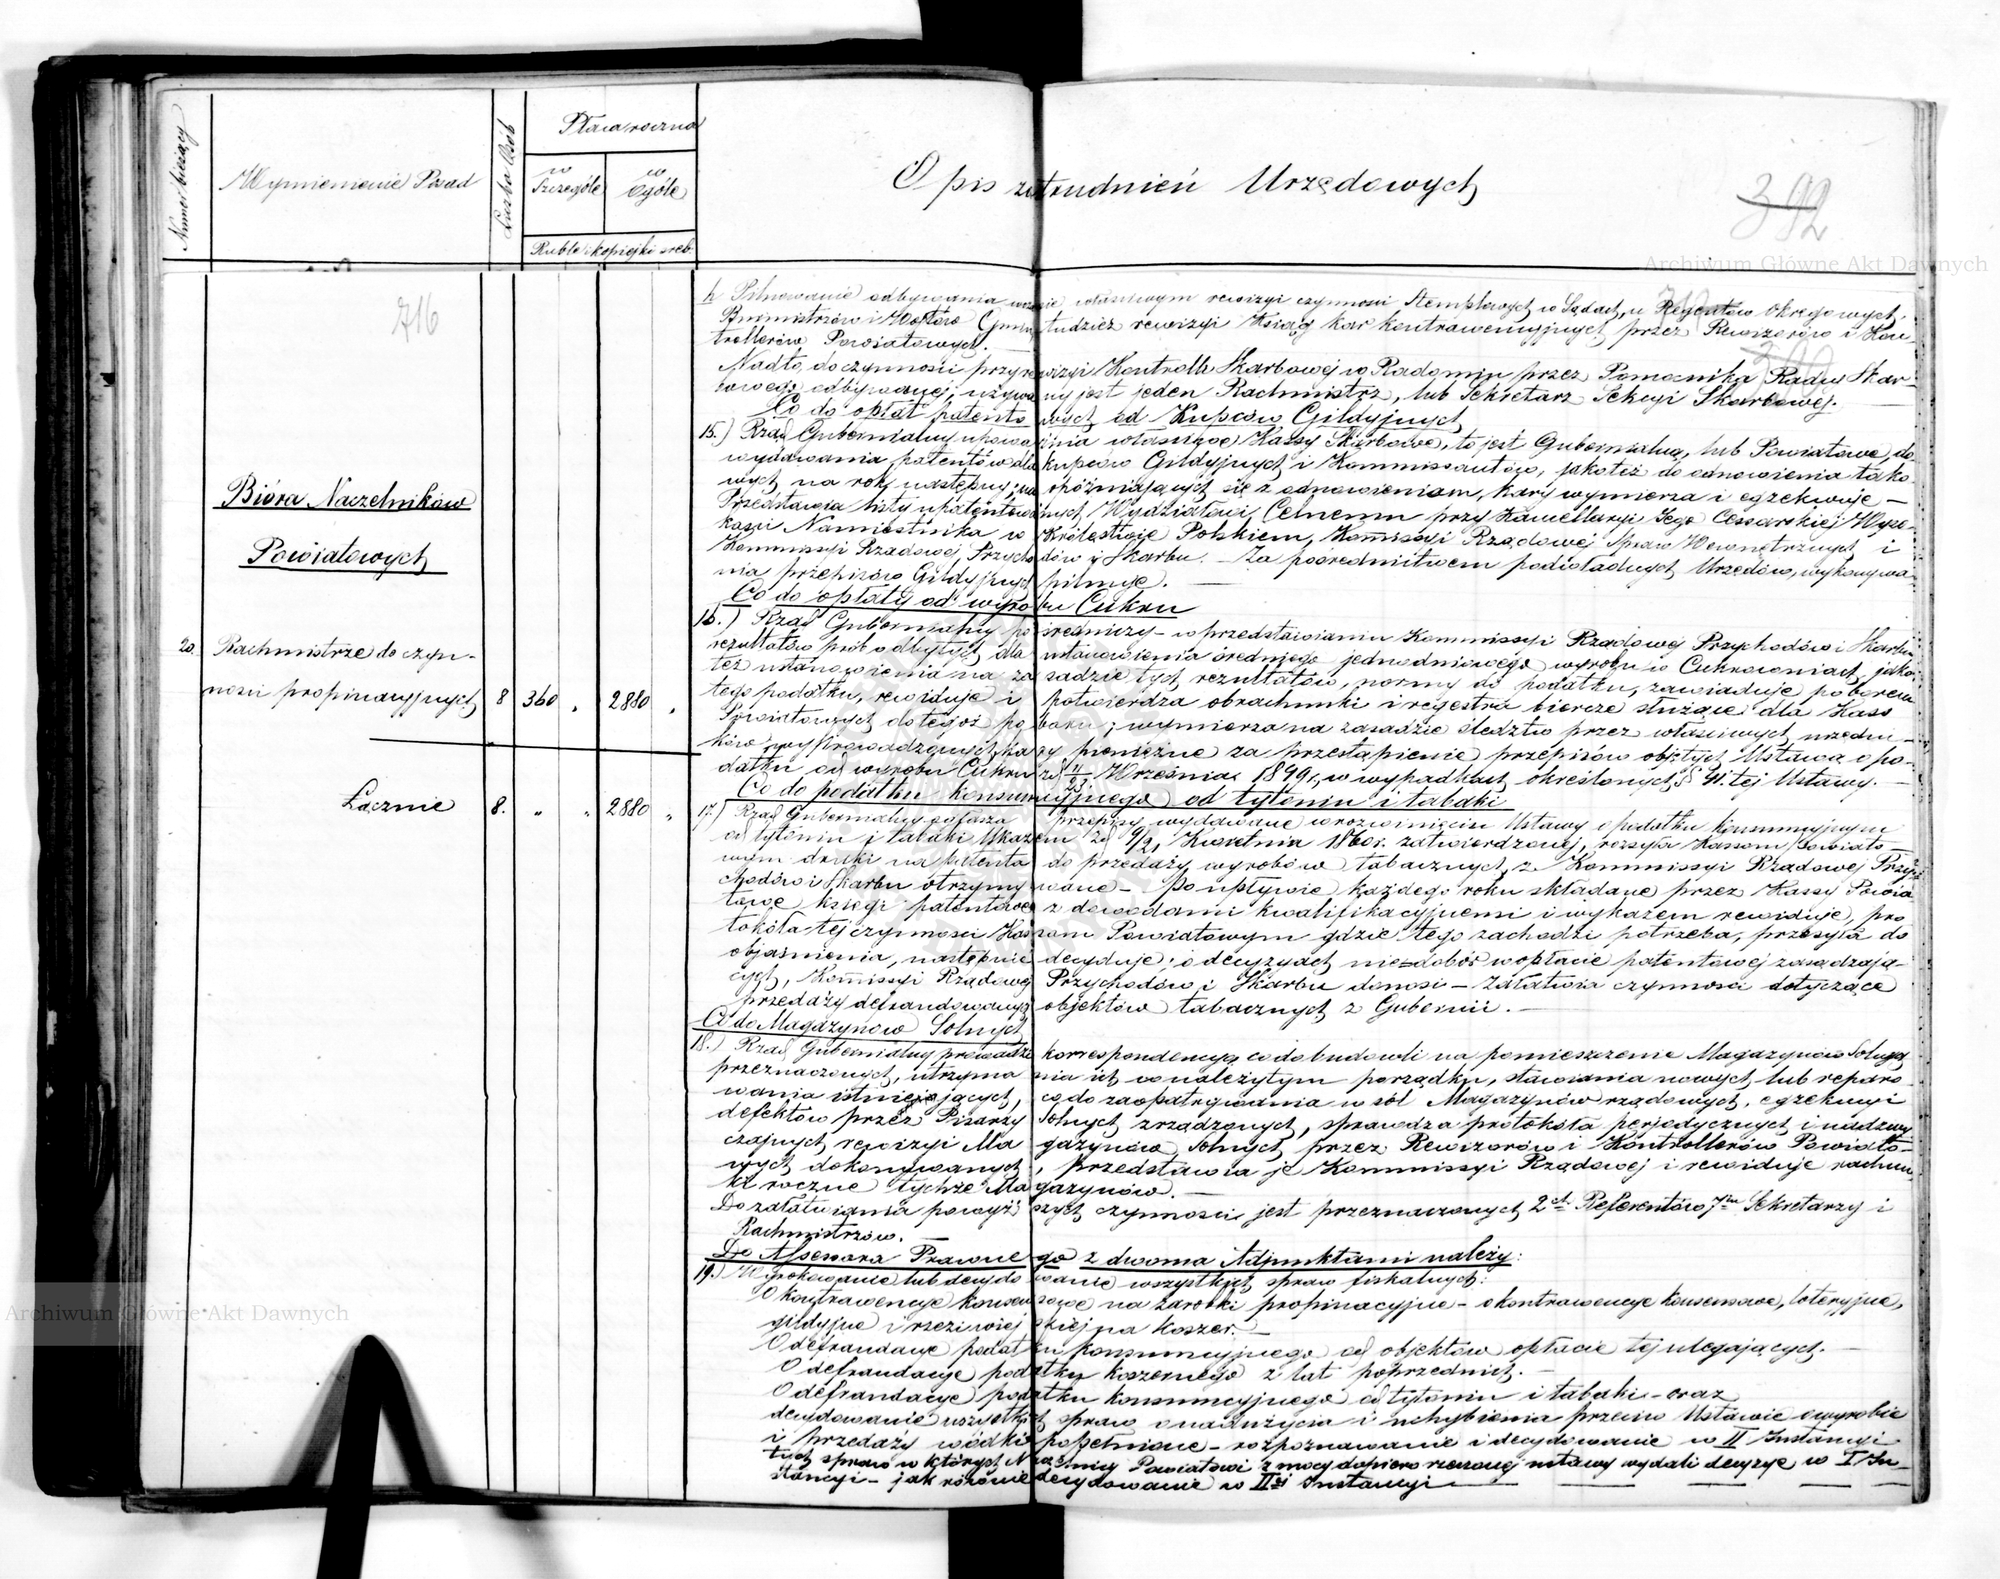 Numer bieżący
Wymienienie Posad
Liczba Osób
Płaca roczna
w Szczególe
w Ogóle
Ruble i kopiejki sreb.
Opis zatrudnień Urzędowych
392
716
Archiwum Główne Akt Dawnych
Bióra Naczelników
Powiatowych
20. Rachmistrze do czyn-
ności propinacyjnych 8 360 „ 2880 „
Łącznie 8. „ „ 2880 „
h Pilnowanie odbywania w czasie właściwym rewizyi czynności Stemplowych w Sądach, u Regentów Okręgowych,
Burmistrzów i Wójtów Gmin, tudzież rewizyi Ksiąg kar kontrawencyjnych przez Rewizorów i Kon
trollerów Powiatowych. —
Nadto do czynności przy rewizyi Kontrolli Skarbowej w Radomiu przez Pomocnika Radcy Skar-
bowego odbywanej, używany jest jeden Rachmistrz, lub Sekretarz Sekcyi Skarbowej.
Co do opłat patentowych od Kupców Gildyjnych
15.) Rząd Gubernialny upoważnia właściwe Kassy Skarbowe, to jest Gubernialną, lub Powiatowe, do
wydawania patentów dla kupców Gildyjnych i Kommissantów, jakoteż do odnowienia tako
wych na rok następny; na opóźniających się z odnowieniem, kary wymierza i egzekwuje. —
Przedstawia listy upatentowanych Wydziałowi Celnemu przy Kancellaryi Jego Cesarskiej Wyso-
kości Namiestnika w Królestwie Polskiem, Komissyi Rządowej Spraw Wewnętrznych i
Kommissyi Rządowej Przychodów i Skarbu. — Za pośrednictwem podwładnych Urzędów, wykonywa-
nia przepisów Gildyjnych pilnuje. —
Co do opłaty od wyrobu Cukru
16.) Rząd Gubernialny pośredniczy w przedstawianiu Kommissyi Rządowej Przychodów i Skarbu
rezultatów prób odbytych dla ustanowienia średniego jednodniowego wyrobu w Cukrowniach, jako
też ustanowienia na zasadzie tych rezultatów, normy do podatku, zawiaduje poborem
tego podatku, rewiduje i potwierdza obrachunki i regestra biercze służące dla Kass
Powiatowych do tegoż poboru; wymierza na zasadzie śledztw przez właściwych urzędni-
ków wyprowadzonych kary pieniężne za przestąpienie przepisów objętych Ustawą o po-
datku od wyrobu Cukru z d. 11/23 Września 1849 r., w wypadkach określonych § 41. tej Ustawy. —
Co do podatku konsumcyjnego od tytoniu i tabaki
17.) Rząd Gubernialny ogłasza przepisy wydawane w rozwinięciu Ustawy o podatku konsumcyjnym
od tytoniu i tabaki Ukazem z d. 9/21 Kwietnia 1860 r. zatwierdzonej, rozsyła Kassom Powiato—
wym druki na patenta do przedaży wyrobów tabacznych, z Kommissyi Rządowej Przy
chodów i Skarbu otrzymywane — po upływie każdego roku składane przez Kassy Powia
towe księgi patentowe z dowodami kwalifikacyjnemi i wykazem rewiduje, pro
tokóła tej czynności Kassom Powiatowym gdzie tego zachodzi potrzeba, przesyła do
objaśnienia, następnie decyduje; o decyzyach niedobór w opłacie patentowej zasądzają-
cych, Komissyi Rządowej Przychodów i Skarbu donosi — Załatwia czynności dotyczące
przedaży defraudowanych objektów tabacznych z Gubernii. —
Co do Magazynów Solnych
18.) Rząd Gubernialny prowadzi korrespondencyą co do budowli na pomieszczenie Magazynów Solnych
przeznaczonych, utrzymania ich w należytym porządku, stawiania nowych lub reparo
wania istniejących, co do zaopatrywania w sól Magazynów rządowych, egzekucyi
defektów przez Pisarzy Solnych zrządzonych, sprawdza protokóła peryodycznych i nadzwy
czajnych rewizyi Magazynów Solnych przez Rewizorów i Kontrollerów Powiato-
wych dokonywanych, przedstawia je Kommissyi Rządowej i rewiduje rachun
ki roczne tychże Magazynów. —
Do załatwiania powyższych czynności jest przeznaczonych 2ch Referentów, 7miu Sekretarzy i
Rachmistrzów. —
Do Assessora Prawnego z dwoma Adjunktami należy:
19.) Wyrokowanie lub decydowanie wszystkich spraw fiskalnych:
O kontrawencye konsensowe na zarobki propinacyjne — o kontrawencye konsensowe, loteryjne,
gildyjne i rzezi wiejskiej na koszer. —
O defraudacye podatku konsumcyjnego od objektów opłacie tej ulegających. —
O defraudacye podatku koszernego z lat poprzednich. —
O defraudacye podatku konsumcyjnego od tytoniu i tabaki — oraz
decydowanie wszystkich spraw o nadużycia i uchybienia przeciw Ustawie o wyrobie
i przedaży wódki popełnione — rozpoznawanie i decydowanie w II Instancyi
tych spraw w których Naczelnicy Powiatowi z mocy dopiero rzeczonej ustawy wydali decyzye w I In—
stancyi — jak również decydowanie w IIej Instancyi
Archiwum Główne Akt Dawnych